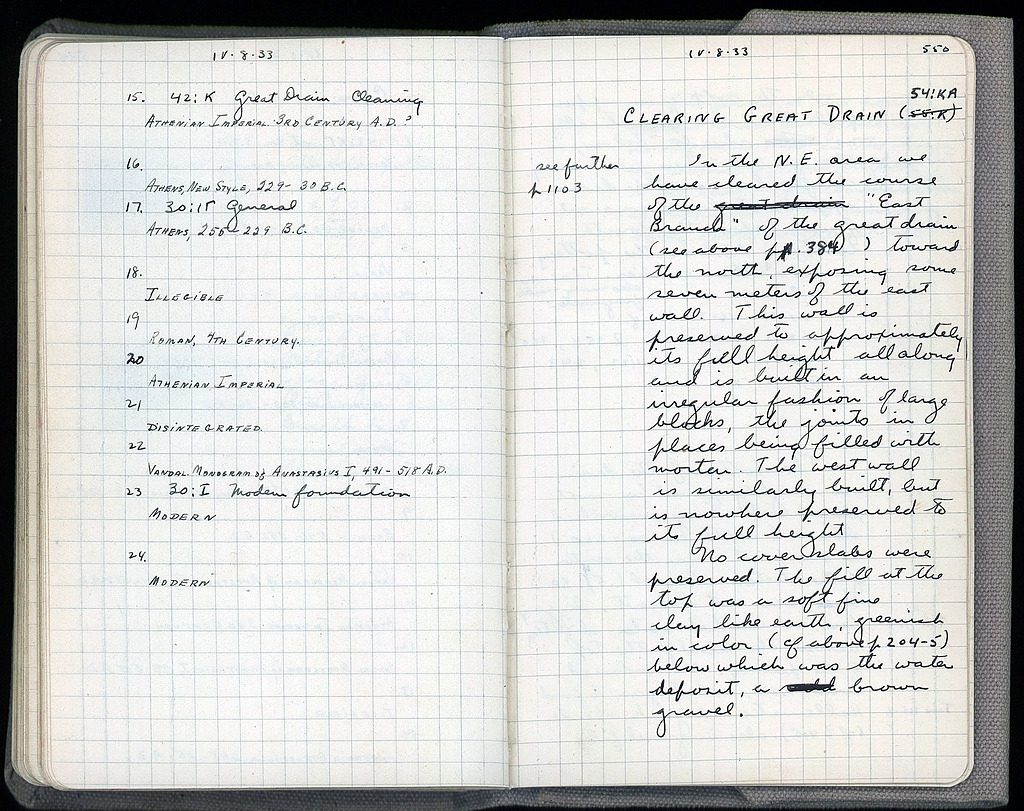 IV·8·33
15. 42:K Great Drain Cleaning
ATHENIAN IMPERIAL 3RD CENTURY A.D. ?
16.
ATHENS, NEW STYLE, 229-30 B.C.
17. General
ATHENS, 255-229 B.C.
18.
ILLEGIBLE
19
ROMAN, 4TH CENTURY.
20
ATHENIAN IMPERIAL
21
DISINTEGRATED.
22
VANDAL. MONOGRAM of ANASTASIUS I, 491-518 A.D.
23 30:I Modern foundation
MODERN
24.
MODERN
IV·8·33 550
54:KA
CLEARING GREAT DRAIN (55:K)
see further
p 1103
In the N.E. area we
have cleared the course
of the great drain "East
Branch" of the great drain
(see above p. 384) toward
the north, exposing some
seven meters of the east
wall. This wall is
preserved to approximately
its full height all along
and is built in an
irregular fashion of large
blocks, the joints in
places being filled with
mortar. The west wall
is similarly built, but
is nowhere preserved to
its full height
No cover slabs were
preserved. The fill at the
top was a soft fine
clay like earth, greenish
in color (cf above p 204-5)
below which was the water
deposit, a brown
gravel.